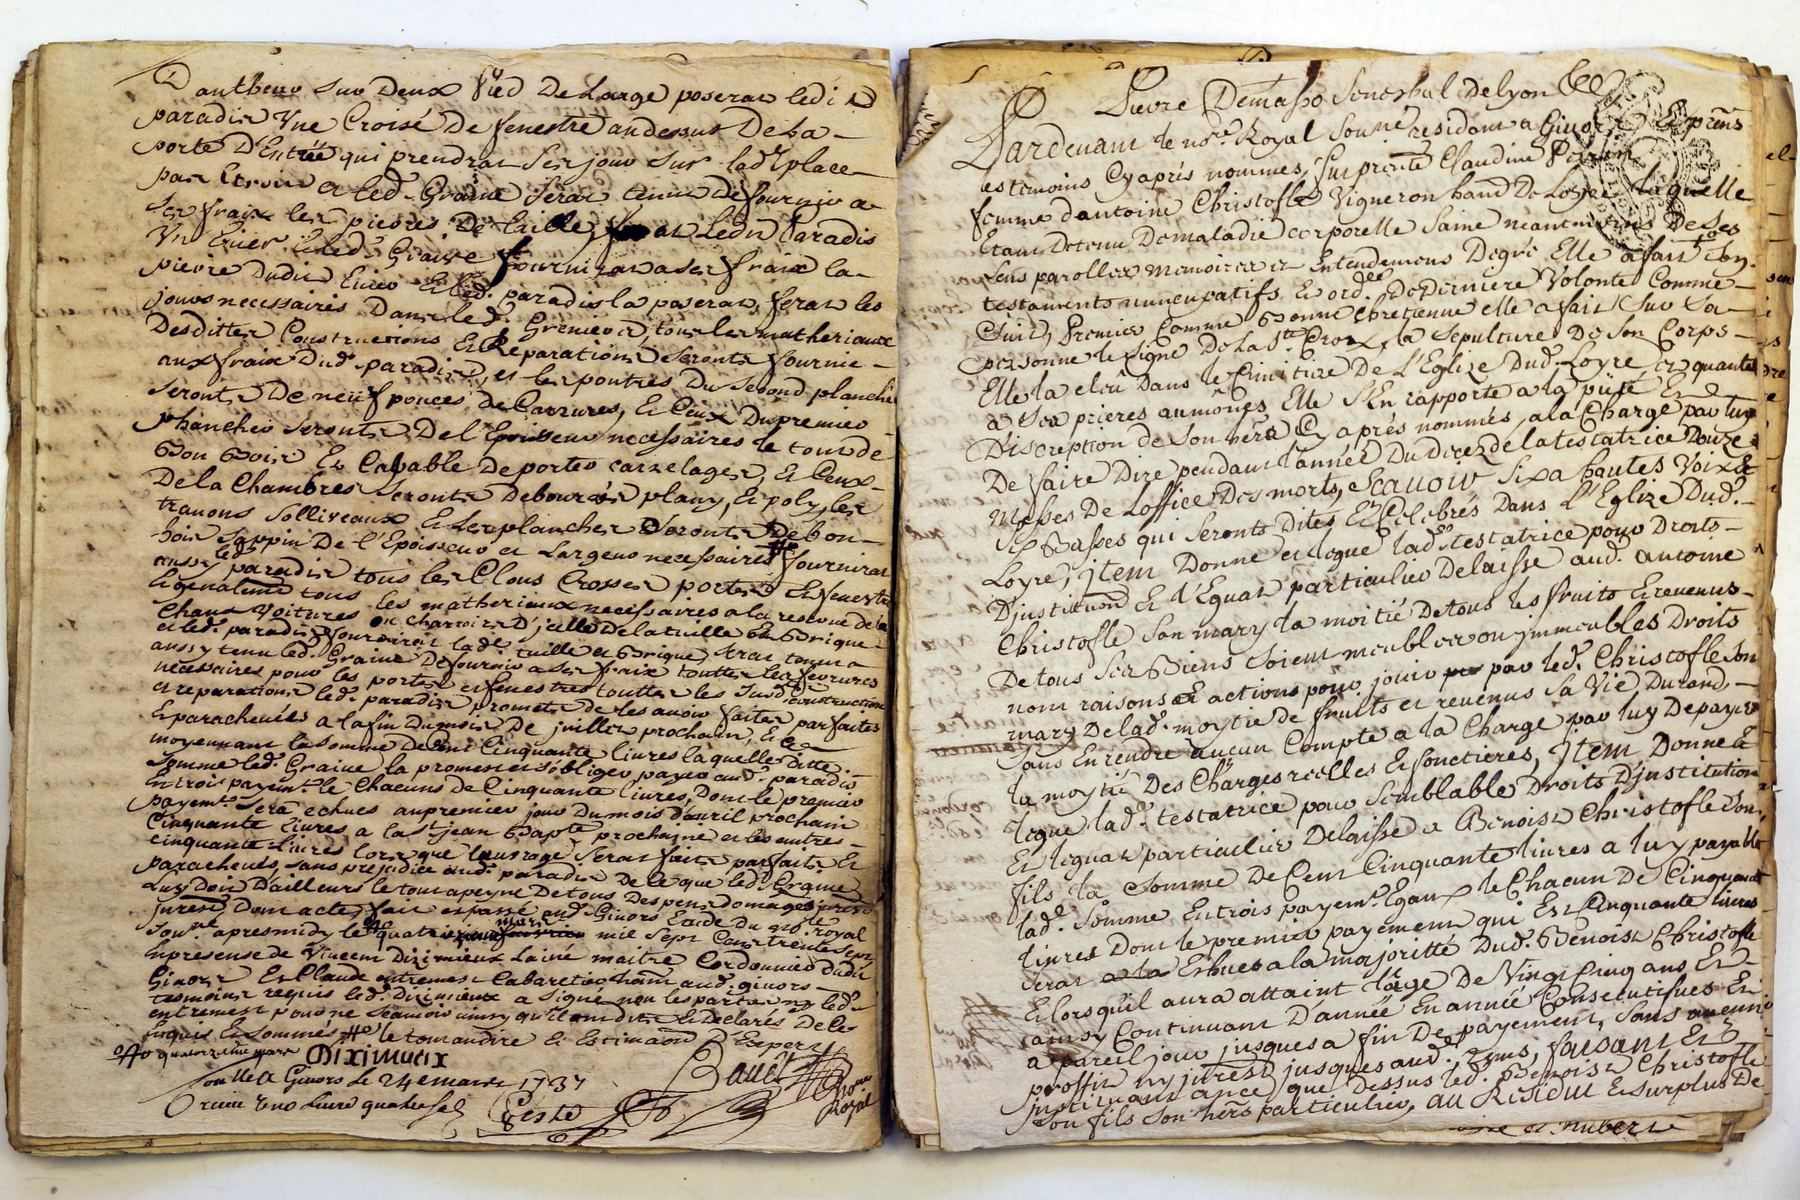 d'autheur sur Deux pied De Large poseras ledit
paradis Vne Croisé De fenestre audessus De La
porte D'Entrée qui prendras ser jour sur lad place
par Etroire et led. Graine Seras tenu De fournir a
Ser fraix les pierres De taille, feras Ledit Paradis
Un Euier et led. Graine fournirat a ser fraix la
pierre Dudit Euier et led. paradis la poseras, feras les
jours necessairés Dans led. Grenier et tous les matheriaux
Desdittes Constructions Et Reparations seronts fournie
aux fraix dud. paradis, et les poutres Du second planché
seronts De neuf pouces de Carrures, Et Ceux Du premier
plancher seronts De l'Epoisseur necessaires le tout de
Bon Bois Et Capable De porter carrelages, Et Ceux
De la Chambres seronts Debourés plany, Et poly, les
travons solliveaux Et les planches seronts De bon
bois sappin De l'Epoisseur et Largeur necessaires fournirat
aussy led. paradis tous les Clous Crosses portes Et fenestre
Et generalemt tous les matheriaux necessaires a la reserve de la
Chaux voitures ou charrois D'jcelle De la tuille et Brique
et led. paradis fournirat lad. tuille et Brique, seras tenu
aussy tenu led. Graine De fournir a ser fraix touttes les ferrures
necessaires pour les portes et fenestres touttes les susd. construction
et reparations led. paradis promets de les avoir faites parfaites
Et parachevées a la fin Du mois De juillet prochain, Et Ce
moyennant la somme De Cent Cinquante livres laquelle ditte
somme led. Graine la promenet et s'obliger payer aud. paradis
En trois payemts le Chacuns de Cinquante livres, Dont le premier
payemt sera echues au premier jour Du mois d'avril prochain
Cinquante livres a la st jean Bapte prochaine et les autres
cinquante livres lors que l'ouvrage seras faits parfaits Et
parachevés, sans prejudice aud. paradis de Ce que led. Graine
luy Doit D'ailleurs le tout a peyne De tous Despens Domages
jnterest, Dont acte, fait et passé aud. Givors Etude du no. royal
Sou.né apres midy le quatre mil Sept Cent trente Sept
En presense de Vincent Diximieux Laine maitre Cordonnier dudit
Givors Et Claude entremont Cabaretier aud. givors
tesmoins requis led. Diximieux a signé non les parties ny led.
entremont pour ne sçavoir ainsy qu'ils ont dits Et Declarés De les
Enquis Et sommés le tout a dire Et Estimaon D'Expers
quatorzième mars
Diximieux
Conlle a Givors le 24e mars 1737
Receu livre quatre sol
Bauet no.re Royal
Pierre Demasso Senechal de Lyon &c
Pardevant le no.re Royal Sou.né residant a Givors
Et tesmoins Cy aprés nommés, fut presente Claudine
femme d'antoine Christofle Vigneron De Loyre laquelle
Etant Detenu De maladie corporelle Saine neantmoins De ses
Sens parolles memoires et Entendement Degré Elle a fait Son
testament nuncupatifs Et orde. De Derniere Volonté Comme
Suit, Premier Comme Bonne Chretienne elle a fait Sur sa
personne le signe De la Ste Croix, la Sepulture De Son Corps
Elle la elû Dans le Cimitiere De L'Eglize Dud. Loyre, et quants
a Ses prieres aumônes, Elle S'En rapporte a la pieté Et
Discreption de Son her. Cy aprés nommés, a la Charge par luy
De faire Dire pendant l'année Du Decez de la testatrice Douze
Messes De L'office Des morts, Scavoir Six a hautes Voix &
Six Basses qui Seronts Dites Et Celebrés Dans L'Eglize Dud.
Loyre, jtem Donne et legue lad. testatrice pour Droits
D'justitution Et L'Eguat particulier Delaisse aud. antoine
Christofle Son mary la moitié De tous les fruits Et revenus
De tous Ses Biens Soient meubles ou jmmeubles Droits
nom raisons Et actions pour jouir par led. Christofle Son
mary De lad. moytié de fruits et revenus Sa Vie Durand,
Sans En rendre aucun Compte a la Charge par luy De payer
la moytié Des Charges reelles Et fonctieres, jtem Donne Et
legue lad. testatrice pour Semblable Droits D'justitution
Et leguat particulier Delaisse a Benoist Christofle Son
fils la Somme De Cent Cinquante livres a luy payable
lad. Somme En trois payemt. Egaux le Chacun De Cinquante
livres Dont le premier payement qui Est Cinquante livres
Seras Echues a la majoritté Dud. Benoist Christofle
Et lorsquil aura attaint l'age De Vingt Cinq ans Et
ainsy Continuant D'année En année Consecutifues Et
a pareil jour jusques a fin De payement, Sans aucun
proffit ny jnterest jusques aud. tems, faisant Et
justituant a pce que Dessus led. Benoist Christofle
Son fils Son hers particulier, au Residut Et Surplus De